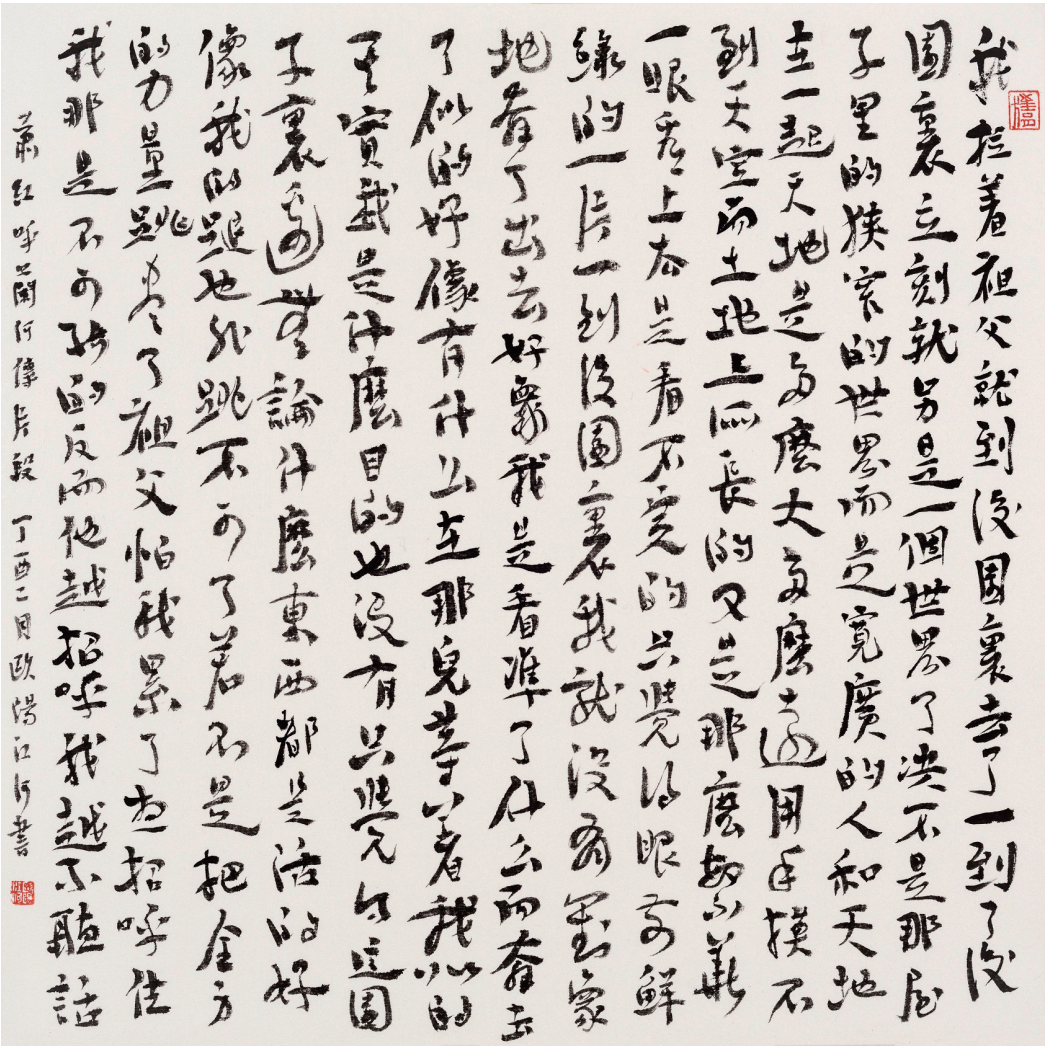 我拉着祖父就到後園裏去了一到了後
園裏立刻就另是一個世界了决不是那房
子里的狹窄的世界而是寬廣的人和天地
在一起天地是多麼大多麼遠用手摸不
到天空而土地上所長的又是那麼繁華
一眼看上去是看不完的只覺得眼前鮮
綠的一片一到後園裏我就没有對象
地奔了出去好象我是看準了什么而奔去
了似的好像有什么在那兒等着我似的
其實我是什麽目的也没有只覺得這園
子裏邊無論什麼東西都是活的好
像我的腿也非跳不可了若不是把全身
的力量跳盡了祖父怕我累了想招呼住
我那是不可能的反而他越招呼我越不聽話
蕭紅呼蘭河傳片段 丁酉二月歐陽江河書